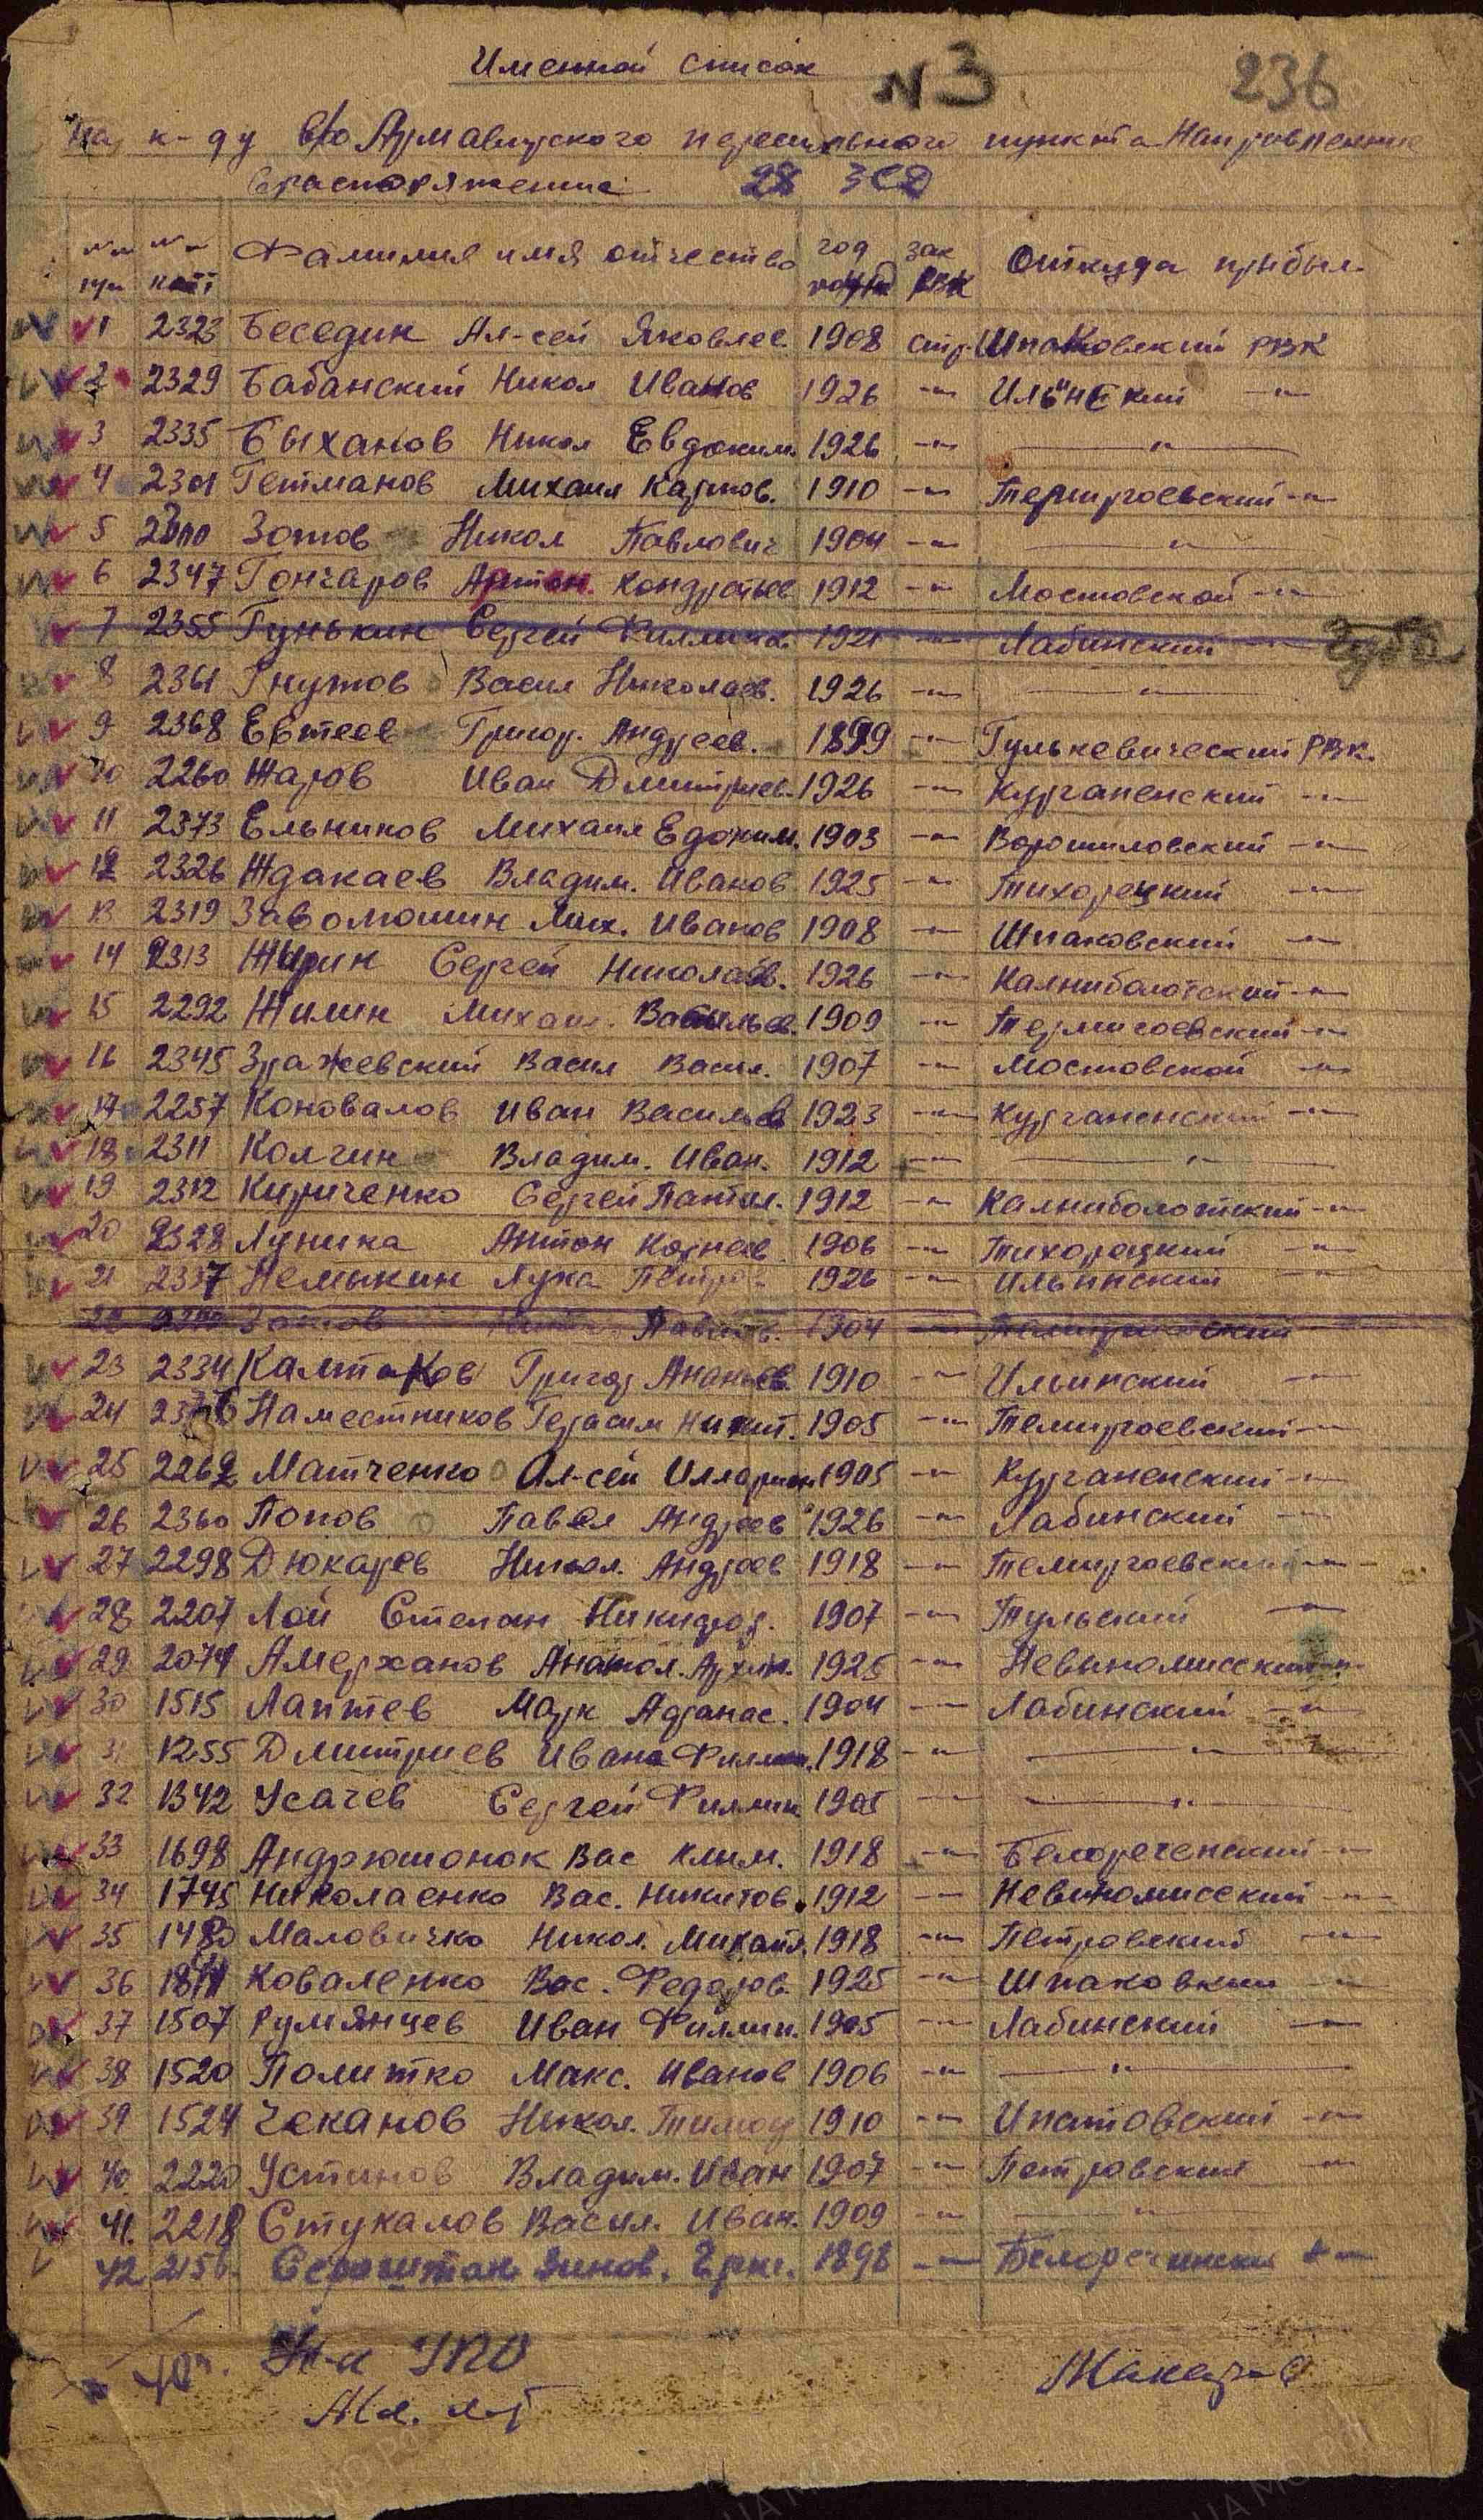 Именной список
N 3
236
На к-ду в/о Армавирского пересыльного пункта Направление
в распоряжение 28 ЗСД
Фамилия имя отчество год зак РВК Откуда прибыл
1 2323 Беседин Ал-сей Яковлев. 1908 стр. Шпаковский РВК
2 2329 Бабанский Никол Иванов 1926 -"- Ильинский -"-
3 2335 Быханов Никол Евдоким. 1926 -"- -"-
4 2301 Гетманов Михаил Карпов. 1910 -"- Темиргоевский -"-
5 2300 Зотов Никол Павлович 1904 -"- -"-
6 2347 Гончаров Антон. Кондратьев 1912 -"- Мостовской -"-
7 2355 Гунькин Сергей Филлип. 1921 -"- Лабинский -"-
8 2361 Гнутов Васил Николаев. 1926 -"- -"-
9 2368 Евтеев Григор. Андреев. 1899 -"- Гулькевический РВК.
10 2260 Жаров Иван Дмитриев. 1926 -"- Курганенский -"-
11 2373 Ельников Михаил Едоким. 1903 -"- Ворошиловский -"-
12 2326 Ждакаев Владим. Иванов 1925 -"- Тихорецкий -"-
13 2319 Заволошин Мих. Иванов 1908 -"- Шпаковский -"-
14 2313 Жирин Сергей Николаев. 1926 -"- Калниболотский -"-
15 2292 Жилин Михаил. Васильев. 1909 -"- Темиргоевский -"-
16 2345 Зражевский Васил Васил. 1907 -"- Мостовской -"-
17 2257 Коновалов Иван Васильев 1923 -"- Курганенский -"-
18 2311 Колгин Владим. Иван. 1912 -"- -"-
19 2312 Кириченко Сергей Пантел. 1912 -"- Калниболотский -"-
20 2328 Луника Антон Корнеев 1906 -"- Тихорецкий -"-
21 2337 Немыкин Лука Петров 1926 -"- Ильинский -"-
22 Зотов Никол. Павлов. 1904 -"- Темиргоевский
23 2334 Калтаков Григор Ананьев. 1910 -"- Ильинский -"-
24 Наместников Герасим Никит. 1905 -"- Темиргоевский -"-
25 2262 Матченко Ал-сей Илларион 1905 -"- Курганенский -"-
26 2360 Попов Павел Андреев 1926 -"- Лабинский -"-
27 2298 Дюкарев Никол. Андреев 1918 -"- Темиргоевский -"-
28 2207 Лой Степан Никифор. 1907 -"- Тульский -"-
29 2074 Амерханов Анатол. Архип. 1925 -"- Невиномисский -"-
30 1515 Лаптев Марк Афанас. 1904 -"- Лабинский -"-
31 1255 Дмитриев Ивана Филлип. 1918 -"- -"-
32 1342 Усачев Сергей Филлип 1905 -"- -"-
33 1698 Андрюшонок Вас Клим. 1918 -"- Белореченский -"-
34 1745 Николаенко Вас. Никитов. 1912 -"- Невиномисский -"-
35 1480 Маловичко Никол. Михайл. 1918 -"- Петровский -"-
36 Коваленко Вас. Федоров. 1925 -"- Шпаковкий -"-
37 1507 Румянцев Иван Филлип. 1905 -"- Лабинский -"-
38 1520 Политко Макс. Иванов 1906 -"- -"-
39 1524 Чеканов Никол. Тимоф 1910 -"- Ипатовский -"-
40 2220 Устинов Владим. Иван 1907 -"- Петровский -"-
41. 2218 Стукалов Васил. Иван. 1909 -"- -"-
42 2156 Зинов. 1898 -"- Белоречински -"-
Н-к УПО
Мл. л-т